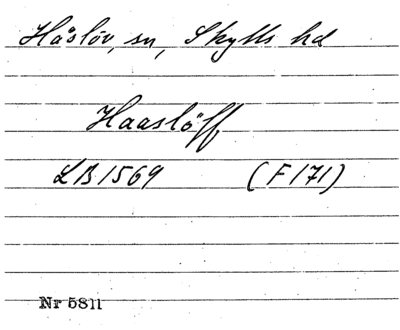 Håslöv, sn, Skytts hd
Haaslöff
LB 1569 (F 171)
Nr 5811